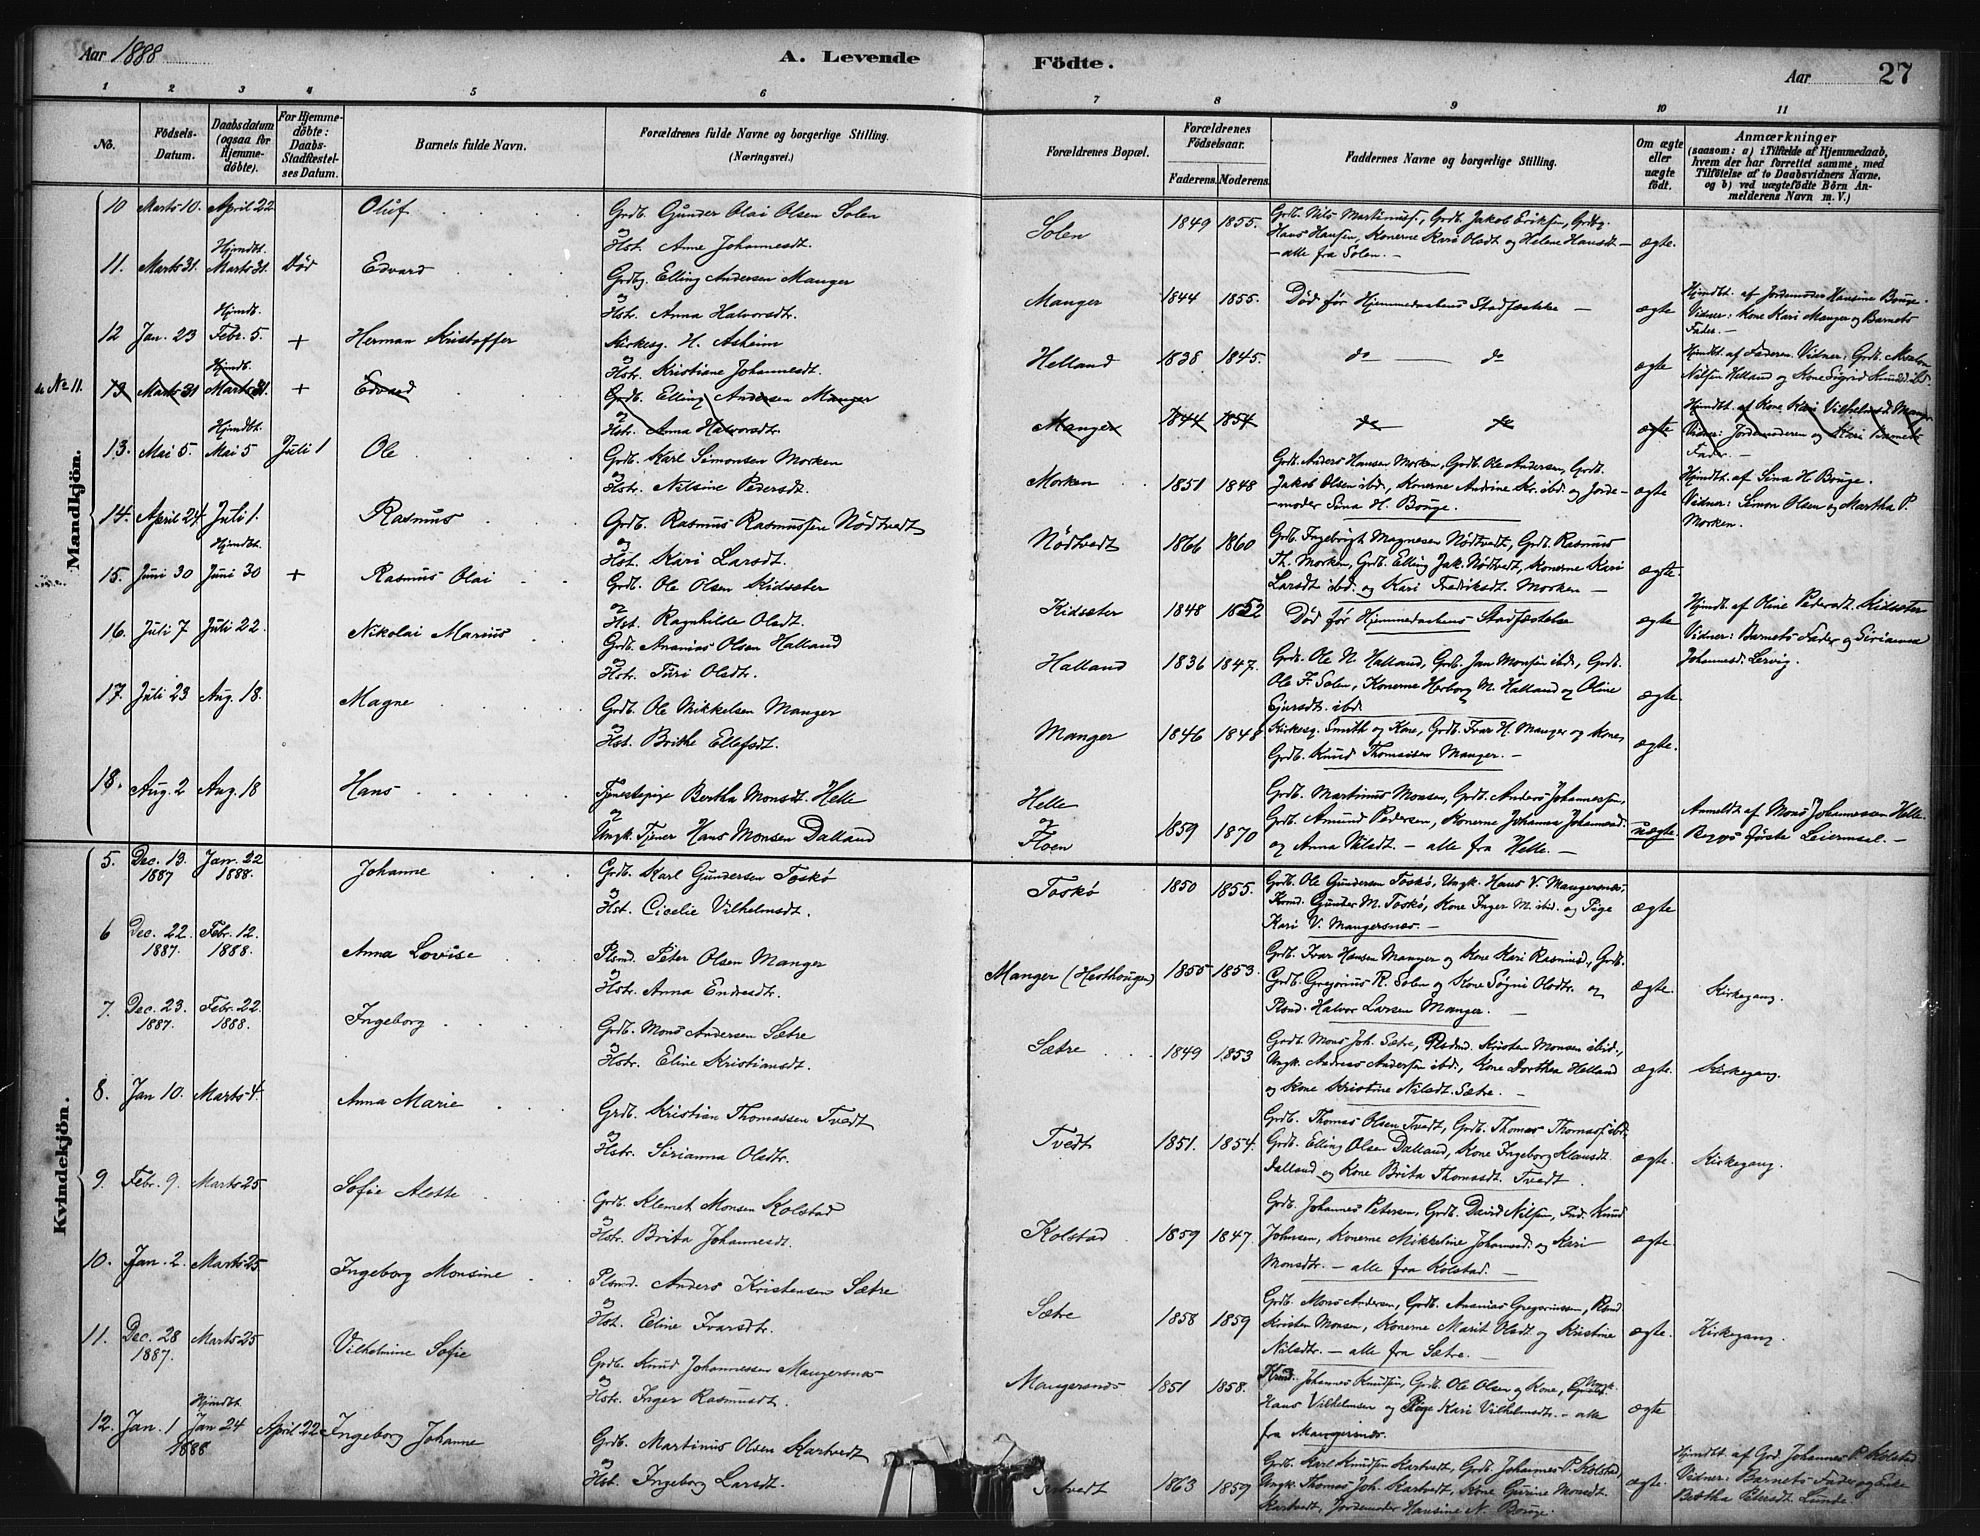 Aar 1888
A. Levende Födte.
Aar 27
1 2 3 4 5 6 7 8 9 10 11
No.
Födsels-Datum.
Daabsdatum (ogsaa for Hjemme-döbte).
For Hjemme-döbte: Daabs-Stadfæstel-ses Datum.
Barnets fulde Navn.
Forældrenes fulde Navne og borgerlige Stilling. (Næringsvei.)
Forældrenes Bopæl.
Forældrenes Födselsaar.
Faderens. Moderens.
Faddernes Navne og borgerlige Stilling.
Om ægte eller uægte födt.
Anmærkninger
(saasom: a) i Tilfælde af Hjemmedaab, hvem der har forrettet samme, med Tilföielse af to Daabsvidners Navne, og b) ved uægtefödte Börn An-melderens Navn m. V.)
Mandkjön.
10 Marts 10. April 22 Oluf
Grdb. Gunder Olai Olsen Solen
og Hst. Anne Johannesdt.
Solen 1849 1855.
Grdb. Nils Martinuss., Grdb. Jakob Eriksen, Grdbg.
Hans Hansen, Konerne Kari Olsdt. og Helene Hansdt.
– alle fra Solen. –
ægte.
11. Marts 31. Hjmdbt. Marts 31. Död Edvard
Grdbg. Elling Andersen Manger
og Hstr. Anna Halvorsdtr.
Manger 1844 1855.
Död för Hjemmedaabens Stadfæstelse –
ægte
Hjmdbt. af Jordemoder Hansine Bouge.
Vidner: Kone Kari Manger og Barnets
Fader. –
12 Jan. 23 Hjmdb. Febr. 5. + Herman Kristoffer
Kirkesg. H. Asheim
og Hstr. Kristiane Johannesdt.
Helland 1838 1845.
do – do
ægte
Hjmdbt. af Faderen. Vidner: Grdb.
Nilsen Helland og Kone Sigrid Knudsd. ibd.
de No 11.
13 Marts 31 Hjmdb. Marts 31. + Edvard
Grdb. Elling Andersen Manger
og Hstr. Anna Halvorsdtr.
Manger 1844 1854
do do
ægte
Hjmdbt. af Kone Kari Vilhelmsdt. Manger
Vidner: Jordemoderen og Barnets
Fader. –
13. Mai 5. Hjmdbt. Mai 5 Juli 1 Ole
Grdb. Karl Simonsen Morken
og Hstr. Nilsine Pedersdt.
Morken 1851 1848
Grdb. Anders Hansen Morken, Grdb. Ole Andersen, Grdb.
Jakob Olsen ibd., Konerne Andrine Kr. ibd. og Jorde-
moder Sina H. Bouge.
ægte
Hjmdbt. af Sina H. Bouge.
Vidner: Simon Olsen og Martha P.
Morken.
14. April 24. Juli 1. Rasmus
Grdb. Rasmus Rasmussen Nödtvedt
og Hst. Kari Larsdt.
Nödtvedt 1866 1860
Grdb. Ingebrigt Magnesen Nödtvedt, Grdb. Rasmus
Th. Morken, Grdb. Elling Jak. Nödtvedt, Konerne Kari
Larsdt. ibd. og Kari Fredriksdt. Morken –
ægte.
15. Juni 30 Hjmdbt. Juni 30 + Rasmus Olai
Grdb. Ole Olsen Kidsæter
og Hst. Ragnhilde Olsdt.
Kidsæter 1848 1852
Död för Hjemmedaabens Stadfæstelse
ægte
Hjmdbt. af Oline Pedersdt. Kidsæter
Vidner: Barnets Fader og Sirianna
Johannesd. Lervig.
16. Juli 7 Juli 22. Nikolai Marius
Grdb. Ananias Olsen Halland
og Hstr. Turi Olsdtr.
Halland 1836 1847.
Grdb. Ole N. Halland, Grdb. Jan Monsen ibd., Grdb.
Ole F. Solen, Konerne Herborg M. Halland og Oline
Sjursdt. ibd.
ægte.
17. Juli 23 Aug. 18. Magne
Grdb. Ole Mikkelsen Manger
og Hst. Brithe Ellefsdt.
Manger 1846 1848
Kirkesg. Smith og Kone, Grdb. Ivar H. Manger og Kone,
Grdb. Knud Thomassen Manger. –
ægte.
18. Aug. 2 Aug. 18 Hans
Tjenestepige Bertha Monsdt. Helle
og Ungk. Tjener Hans Monsen Dalland
Helle og Floen 1859 1870
Grdb. Martinus Monsen, Grdb. Anders Johannessen,
Grdb. Amund Pedersen, Konerne Johanna Johannesd.
og Anna Nilsdt. – alle fra Helle. –
uægte.
Anmeldt af Mons Johannessen Helle.
Begges förste Leiermaal. –
Kvindekjön.
5. Dec. 13. 1887 Jan. 22 1888. Johanne
Grdb. Karl Gundersen Toskö
og Hst. Cicelie Vilhelmsdt.
Toskö 1850 1855.
Grdb. Ole Gundersen Toskö, Ungk. Hans V. Mangersnæs,
Gunder M. Toskö, Kone Inger M. ibd. og Pige
Kari V. Mangersnæs. –
ægte
6 Dec. 22. 1887. Febr. 12. 1888. Anna Lovise
Plsmd. Peter Olsen Manger
og Hstr. Anna Endresdtr.
Manger (Hesthougen) 1855 1853.
Grdb. Ivar Hansen Manger og Kone Kari Rasmusd., Grdb.
Grdb. Gregorius R. Solen og Kone Sögni Olsdtr. og
Plsmd. Halvor Larsen Manger. –
ægte. Kirkegang.
7. Dec. 23. 1887. Febr. 22 1888. Ingeborg
Grdb. Mons Andersen Sætre
og Hstr. Eline Kristiansdt.
Sætre 1849 1853
Grdb. Mons Joh. Sætre, Plsdmd. Kristen Monsen ibid.,
Ungk. Andreas Andersen ibd., Kone Dorthea Helland
og Kone Kristine Nilsdt. Sætre. –
ægte. Kirkegang.
8. Jan 10. Marts 4. Anna Marie
Grdb. Kristian Thomassen Tvedt
og Hstr. Sirianna Olsdtr.
Tvedt 1851. 1854.
Grdb. Thomas Olsen Tvedt, Grdb. Thomas Thomass. ibd.
Grdb. Elling Olsen Dalland, Kone Ingeborg Klausdt.
Dalland og Kone Brita Thomasdt. Tvedt.
ægte. Kirkegang.
9. Febr. 9. Marts 25 Sofie Alette
Grdb. Klemet Monsen Kolstad
og Hstr. Brita Johannesdt.
Kolstad 1859 1847.
Grdb. Johannes Petersen, Grdb. David Nilsen, Knud
Johnsen, Konerne Mikkeline Johannesd. og Kari
Monsdtr. – alle fra Kolstad. –
ægte.
10. Jan. 2. Marts 25 Ingeborg Monsine
Plsmd. Anders Kristensen Sætre
og Hst. Eline Ivarsdtr.
Sætre 1858 1859
Grdb. Mons Andersen, Grdb. Ananias Gregoriussen, Plsmd.
Kristen Monsen, Konerne Marit Olsdt. og Kristine
Nilsdtr. – alle fra Sætre. –
ægte. Kirkegang.
11. Dec. 28 1887. Marts 25 Vilhelmine Sofie
Grdb. Knud Johannessen Mangersnæs
og Hst. Inger Rasmusdt.
Mangersnæs 1851 1858.
Johannes Knudsen, Grdb. Ole Olsen og Kone, Ungk.
Hans Vilhelmsen og Pige Kari Vilhelmsdtr. – alle
fra Mangersnæs.
ægte
12. Jan. 1 Hjmdbt. Jan 24 1888 April 22 Ingeborg Johanne
Grdb. Martinus Olsen Kartvedt
og Hst. Ingeborg Larsdt.
1863 1859
Grdb. Karl Knudsen Kartvedt, Grdb. Johannes P. Kolstad,
Ungk. Thomas Joh. Kartvedt, Kone Gurine Monsdt.
Kartvedt, Jordemoder Hansine N. Bouge.
ægte.
Hjmdbt. af Grd. Johannes P. Kolstad
Vidner: Barnets Fader og Enke
Bertha Petersdt. Lunde